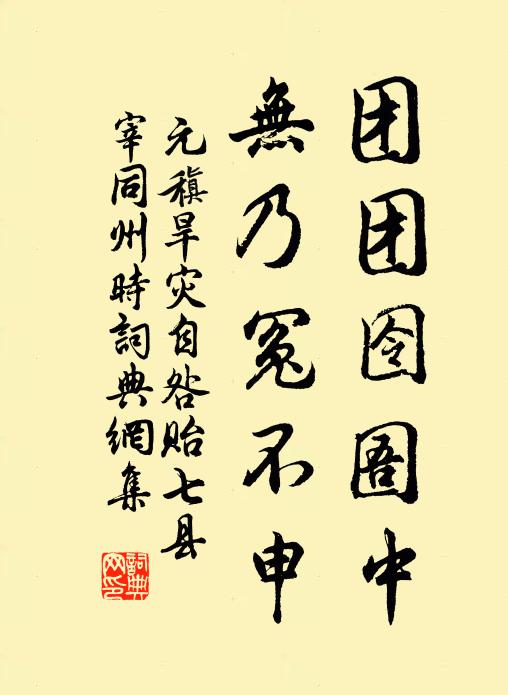 团团囹圄中
無乃冤不申
元稹旱灾自咎贻七县
宰同州時詞典網集
詞典网印